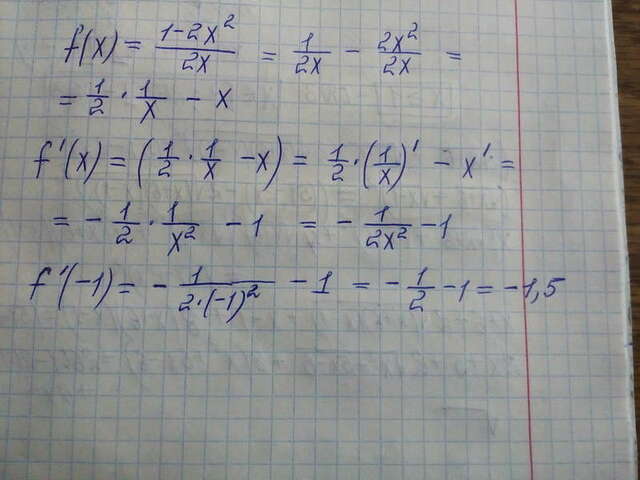 f(x) = \frac{1-2x^2}{2x} = \frac{1}{2x} - \frac{2x^2}{2x} =
= \frac{1}{2} · \frac{1}{x} - x
f'(x) = (\frac{1}{2} · \frac{1}{x} - x) = \frac{1}{2} · (\frac{1}{x})' - x' =
= - \frac{1}{2} · \frac{1}{x^2} - 1 = - \frac{1}{2x^2} - 1
f'(-1) = - \frac{1}{2·(-1)^2} - 1 = - \frac{1}{2} - 1 = -1,5